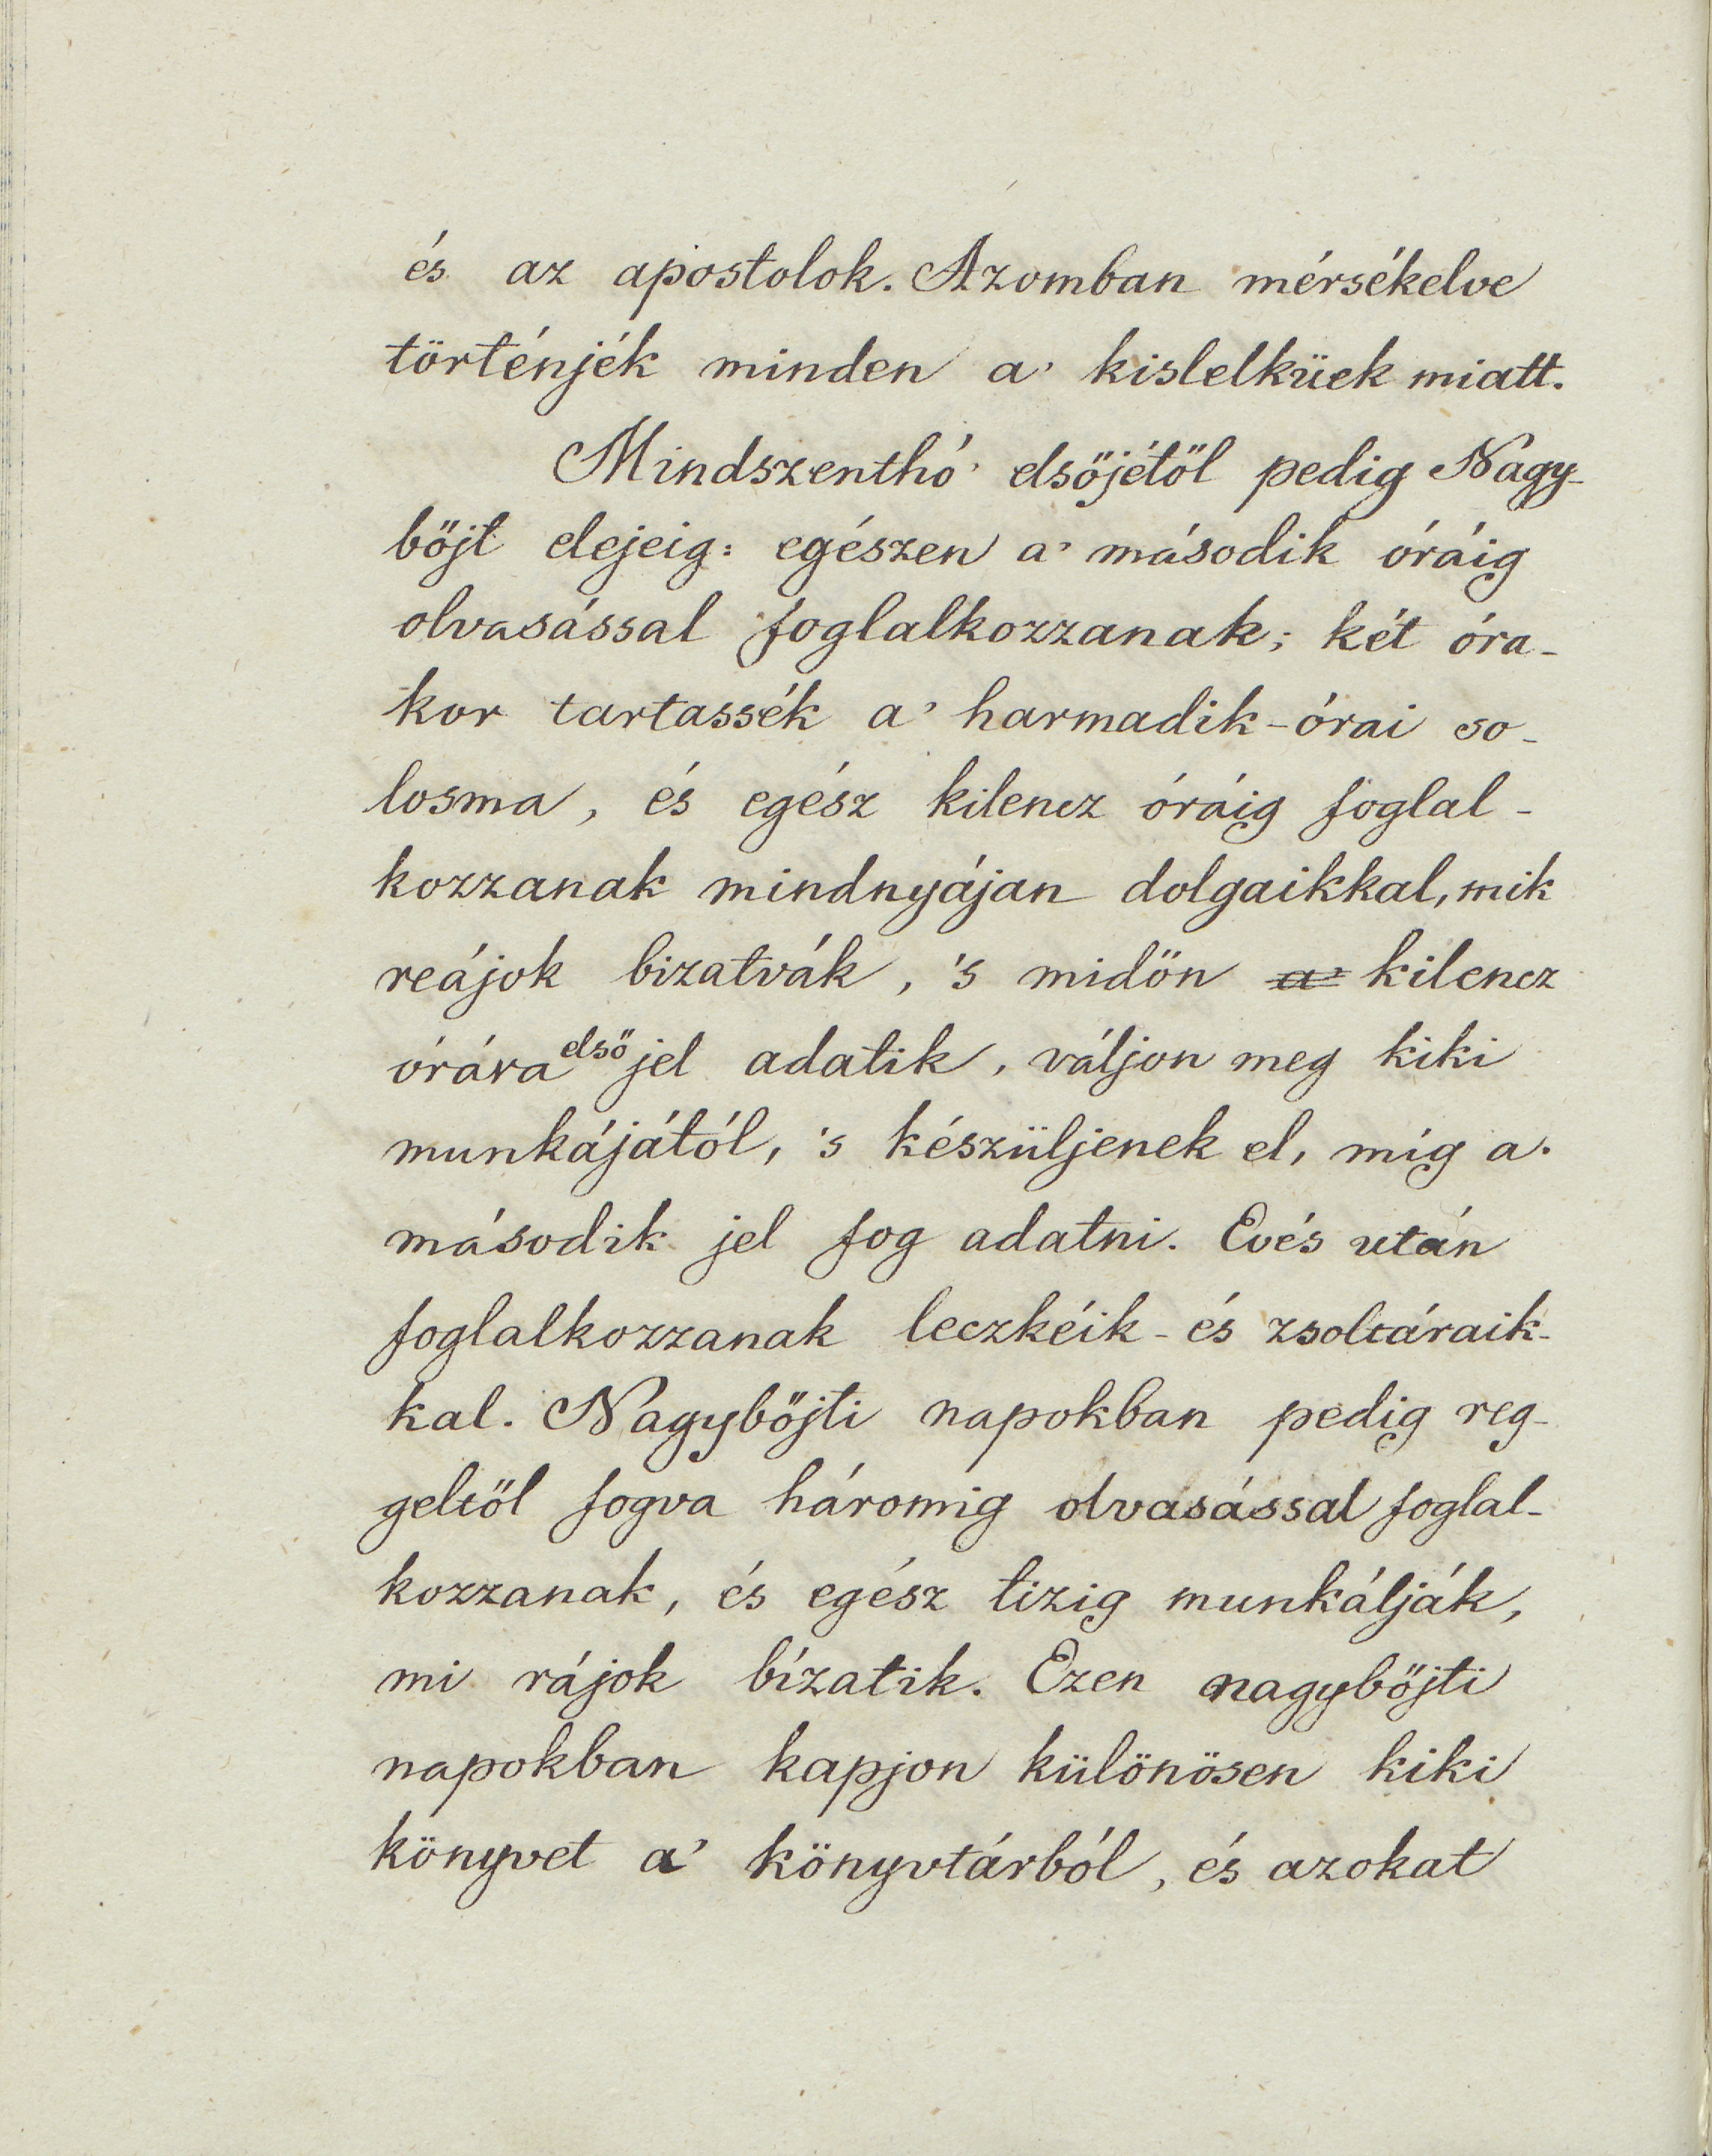 és az apostolok. Azomban mérsékelve
történjék minden a' kislelküek miatt.
Mindszenthó' elsőjétől pedig Nagy-
böjt elejeig: egészen a' második óráig
olvasással foglalkozzanak; két óra-
kor tartassék a' harmadik-órai so-
losma, és egész kilencz óráig foglal-
kozzanak mindnyájan dolgaikkal, mik
reájok bizatvák, 's midőn a' kilencz
órára első jel adatik, váljon meg kiki
munkájától, 's készüljenek el, míg a'
második jel fog adatni. Evés után
foglalkozzanak leczkéik- és zsoltáraik-
kal. Nagyböjti napokban pedig reg-
geltől fogva háromig olvasással foglal-
kozzanak, és egész tizig munkálják,
mi rájok bízatik. Ezen nagyböjti
napokban kapjon különösen kiki
könyvet a' könyvtárból, és azokat